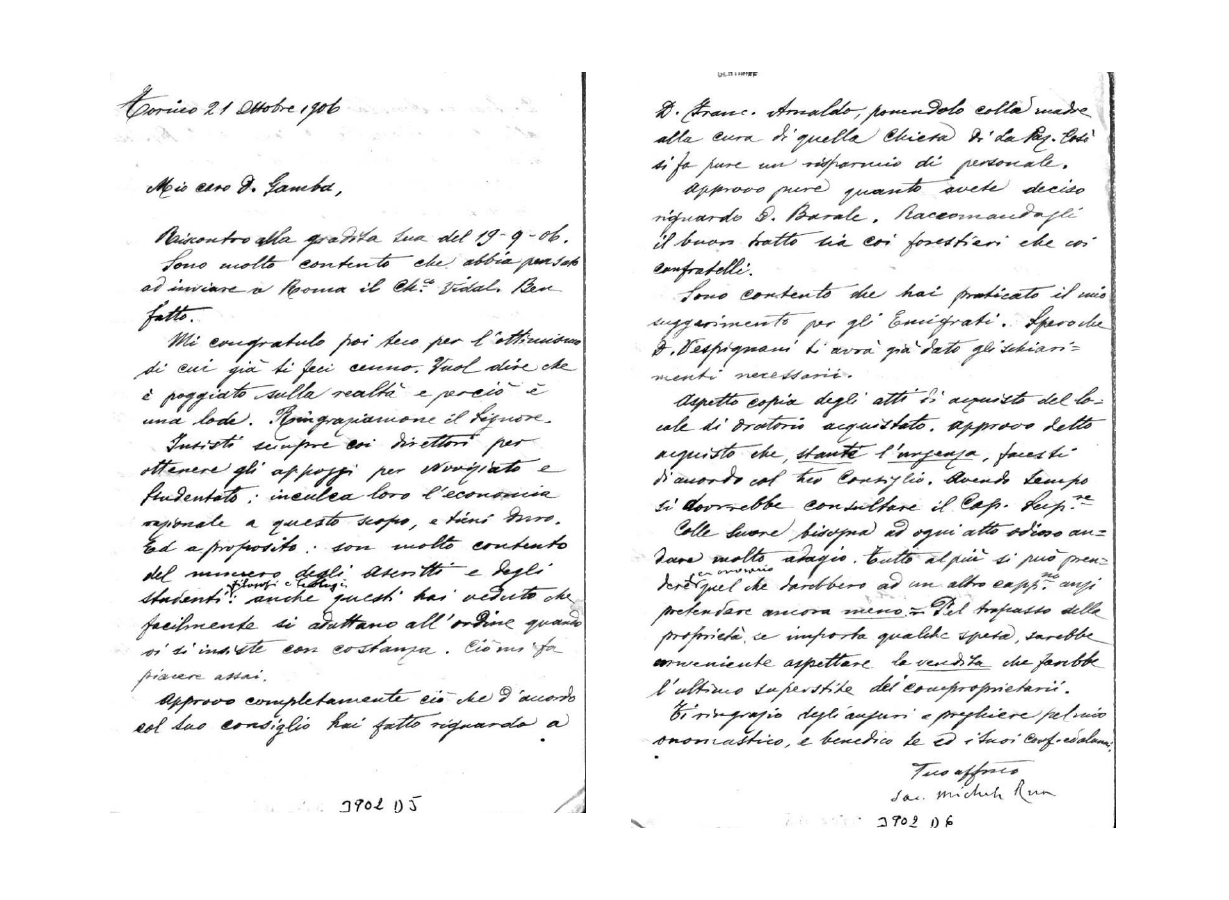 Torino 21 Ottobre 1906
Mio caro D. Gamba,
Riscontro alla gradita tua del 19-9-06.
Sono molto contento che abbia pensato
ad inviare a Roma il Ch.co Vidal. Ben
fatto.
Mi congratulo poi teco per l'ottimismo
di cui già ti feci cenno. Vuol dire che
è poggiato sulla realtà e perciò è
una lode. Ringraziamone il Signore.
Insisti sempre coi direttori per
ottenere gli appoggi per Noviziato e
Studentato; inculca loro l'economia
razionale a questo scopo, e tieni duro.
Ed a proposito: son molto contento
del numero degli ascritti e degli
filosofi e teologi
studenti: anche questi hai veduto che
facilmente si adattano all'ordine quando
vi si insiste con costanza. Ciò mi fa
piacere assai.
Approvo completamente ciò che d'accordo
col tuo consiglio hai fatto riguardo a
3902 D5
D. Franc. Arnaldo, ponendolo colla madre
alla cura di quella Chiesa di La Paz. Così
si fa pure un risparmio di personale.
Approvo pure quanto avete deciso
riguardo D. Barale. Raccomandagli
il buon tratto sia coi forestieri che coi
confratelli.
Sono contento che hai praticato il mio
suggerimento per gli Emigrati. Spero che
D. Vespignani ti avrà già dato gli schiari=
menti necessarii.
Aspetto copia degli atti di acquisto del lo=
cale di Oratorio acquistato. Approvo detto
acquisto che, stante l'urgenza, facesti
d'accordo col tuo Consiglio. Avendo tempo
si dovrebbe consultare il Cap. Sup.re
Colle Suore bisogna ad ogni atto odioso an=
dare molto adagio. Tutto al più si può pren=
dere quel che darebbero ad un altro capp.no anzi
pretendere ancora meno. = Pel trapasso della
proprietà, se importa qualche spesa, sarebbe
conveniente aspettare la vendita che farebbe
l'ultimo superstite dei comproprietarii.
Ti ringrazio degli auguri e preghiere pel mio
onomastico, e benedico te ed i tuoi Conf. ed alunni,
Tuo aff.mo
Sac. Michele Rua
3902 D6